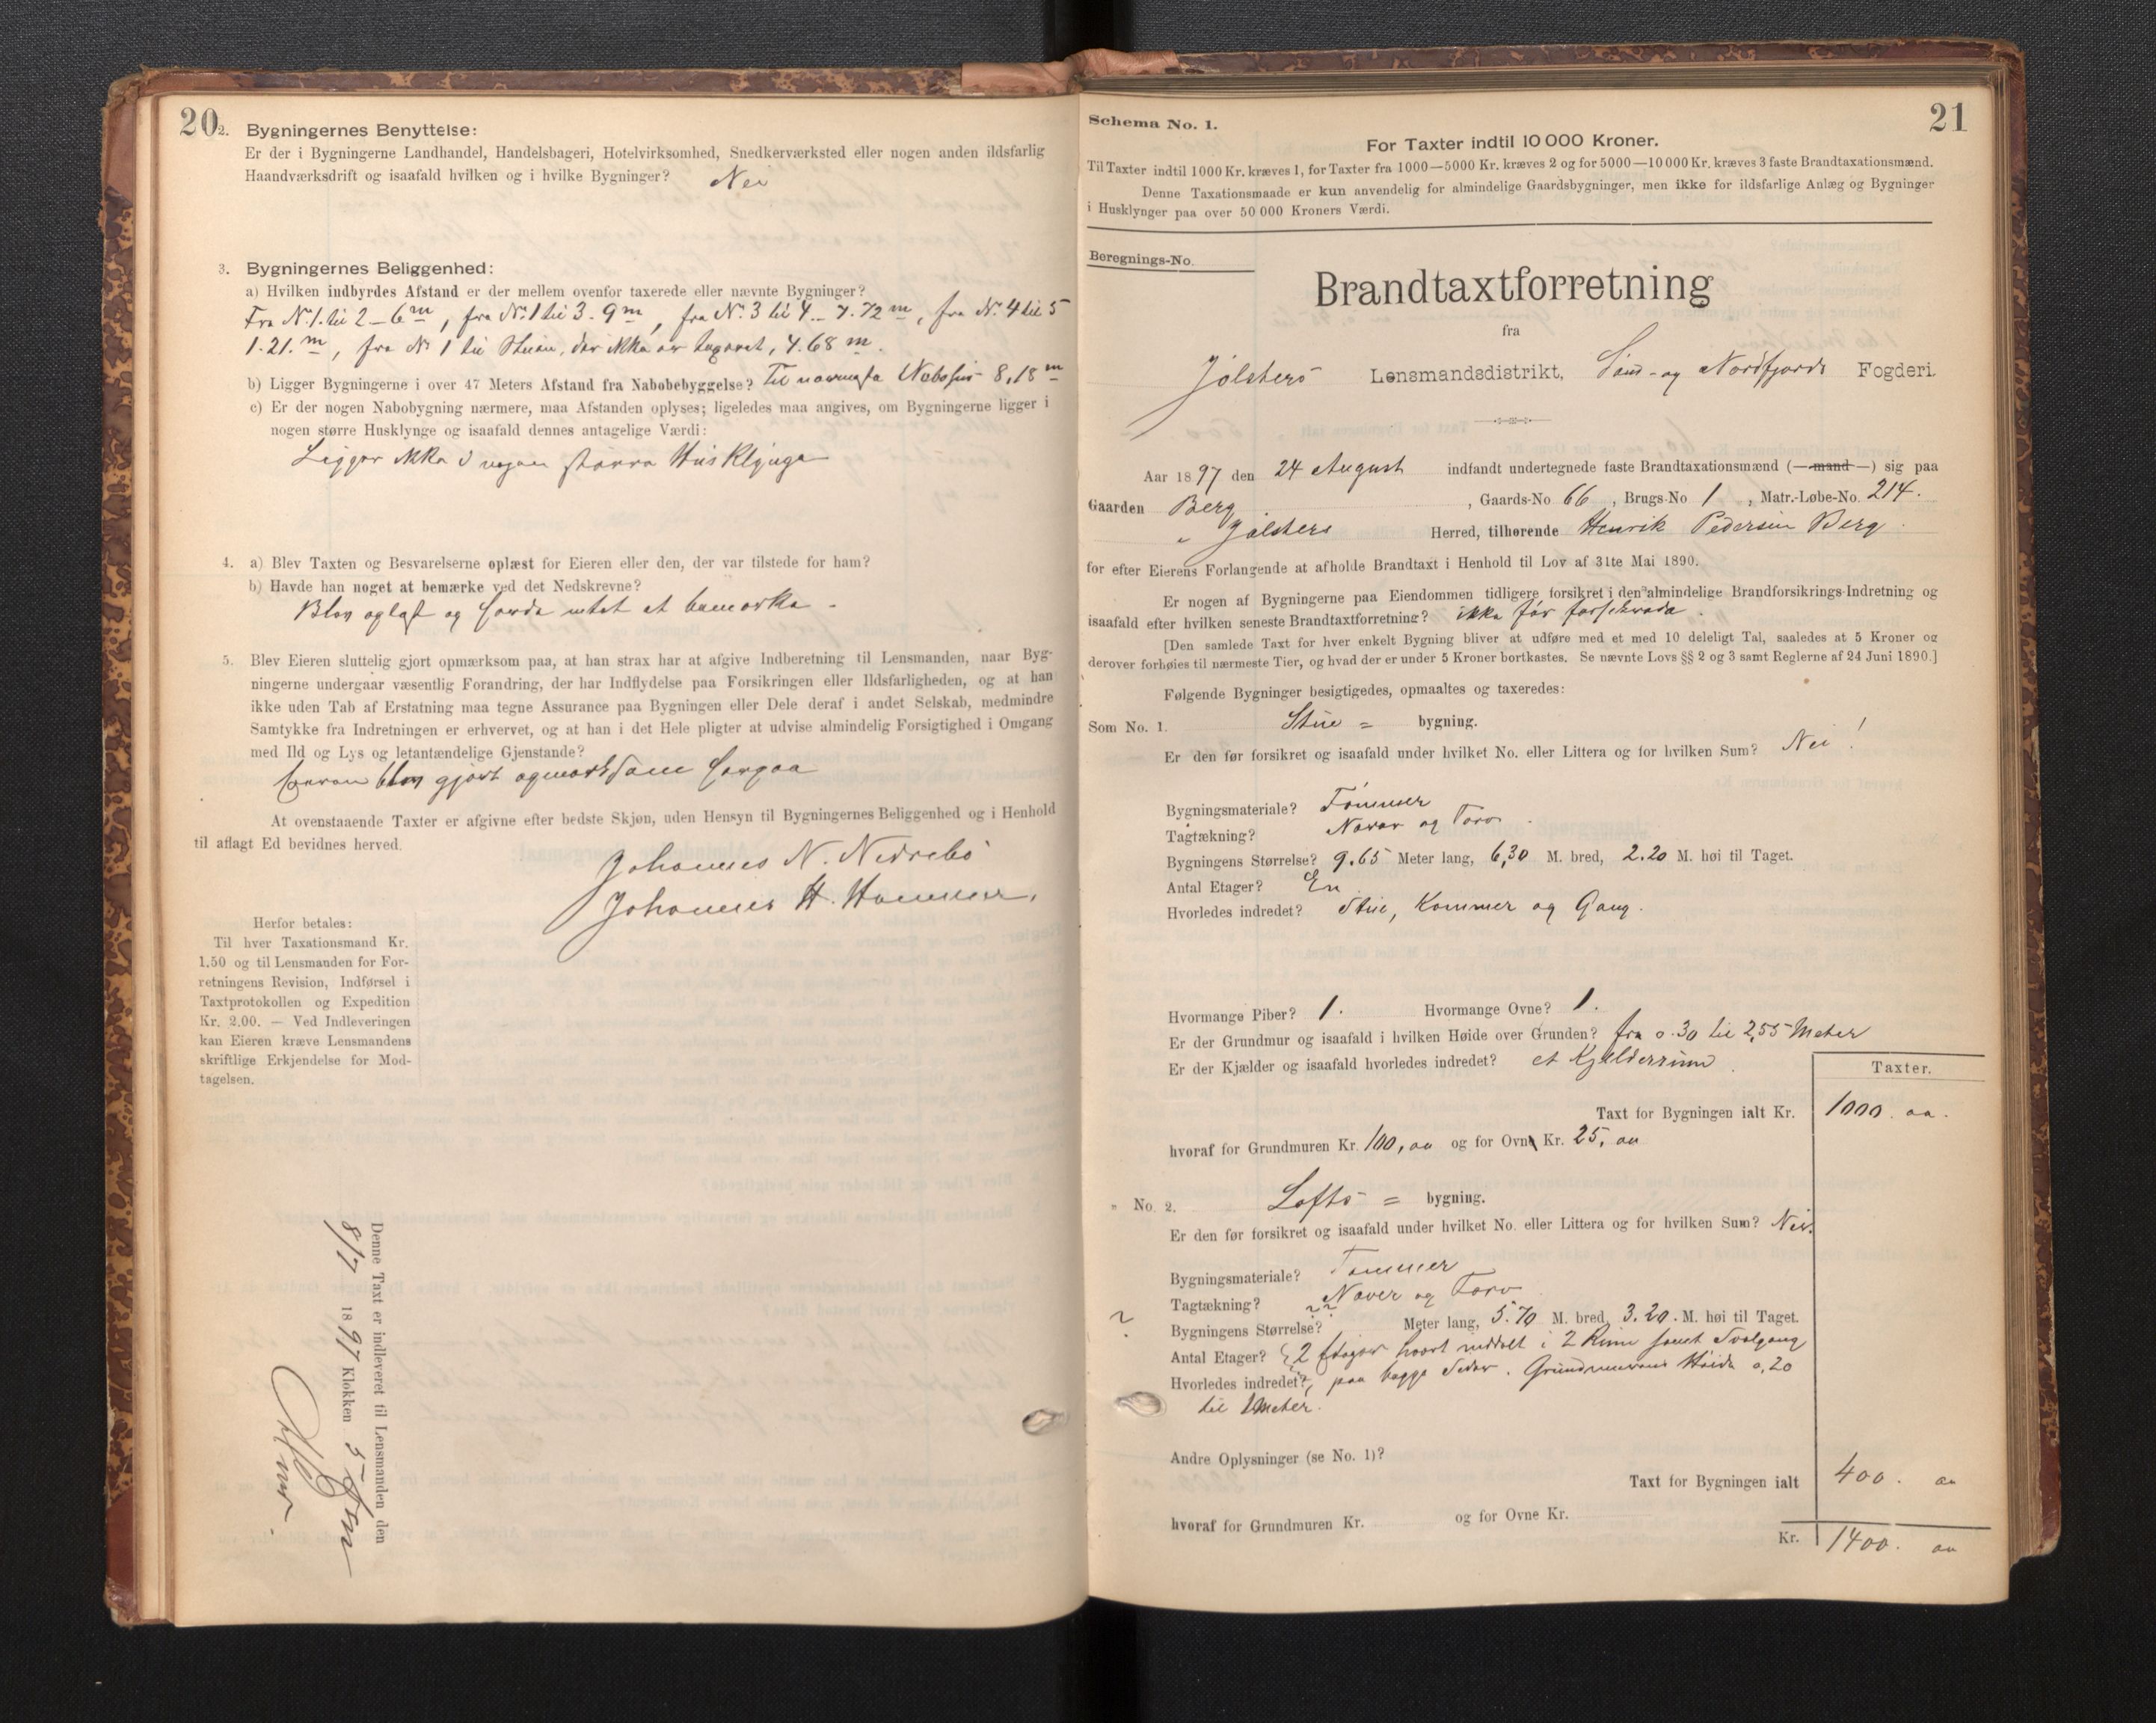 20
2. Bygningernes Benyttelse:
Er der i Bygningerne Landhandel, Handelsbageri, Hotelvirksomhed, Snedkerværksted eller nogen anden ildsfarlig
Haandværksdrift og isaafald hvilken og i hvilke Bygninger? Nei
3. Bygningernes Beliggenhed:
a) Hvilken indbyrdes Afstand er der mellem ovenfor taxerede eller nævnte Bygninger?
Fra No. 1. til 2 - 6 m, fra No. 1 til 3 - 9 m, fra No. 3 til 4 - 7.72 m, fra No. 4 til 5
1.21. m, fra No 1 til Stuen, der ikke er taxeret, 4.68 m.
b) Ligger Bygningerne i over 47 Meters Afstand fra Nabobebyggelse? Til nærmeste Nabohus 8,18 m
c) Er der nogen Nabobygning nærmere, maa Afstanden oplyses; ligeledes maa angives, om Bygningerne ligger i
nogen større Husklynge og isaafald dennes antagelige Værdi:
Ligger ikke i nogen større Husklynge
4. a) Blev Taxten og Besvarelserne oplæst for Eieren eller den, der var tilstede for ham?
b) Havde han noget at bemærke ved det Nedskrevne?
Blev oplæst og havde intet at bemærke -
5. Blev Eieren sluttelig gjort opmærksom paa, at han strax har at afgive Indberetning til Lensmanden, naar Byg-
ningerne undergaar væsentlig Forandring, der har Indflydelse paa Forsikringen eller Ildsfarligheden, og at han
ikke uden Tab af Erstatning maa tegne Assurance paa Bygningen eller Dele deraf i andet Selskab, medmindre
Samtykke fra Indretningen er erhvervet, og at han i det Hele pligter at udvise almindelig Forsigtighed i Omgang
med Ild og Lys og letantændelige Gjenstande?
Eieren blev gjort opmærksom herpaa
At ovenstaaende Taxter er afgivne efter bedste Skjøn, uden Hensyn til Bygningernes Beliggenhed og i Henhold
til aflagt Ed bevidnes herved.
Johannes N. Nedrebö
Johannes H. Hammer.
Herfor betales:
Til hver Taxationsmand Kr.
1.50 og til Lensmanden for For-
retningens Revision, Indførsel i
Taxtprotokollen og Expedition
Kr. 2.00. — Ved Indleveringen
kan Eieren kræve Lensmandens
skriftlige Erkjendelse for Mod-
tagelsen.
Denne Taxt er indleveret til Lensmanden den
8/7 1897 Klokken 5
21
Schema No. 1.
For Taxter indtil 10 000 Kroner.
Til Taxter indtil 1000 Kr. kræves 1, for Taxter fra 1000—5000 Kr. kræves 2 og for 5000—10 000 Kr. kræves 3 faste Brandtaxationsmænd.
Denne Taxationsmaade er kun anvendelig for almindelige Gaardsbygninger, men ikke for ildsfarlige Anlæg og Bygninger
i Husklynger paa over 50 000 Kroners Værdi.
Beregnings-No.
Brandtaxtforretning
fra
Jölsters Lensmandsdistrikt, Sönd- og Nordfjords Fogderi.
Aar 1897 den 24 August indfandt undertegnede faste Brandtaxationsmænd (—mand—) sig paa
Gaarden Berg, Gaards-No 66, Brugs-No 1, Matr.-Løbe-No. 214.
i Jölsters Herred, tilhørende Henrik Pedersen Berg.
for efter Eierens Forlangende at afholde Brandtaxt i Henhold til Lov af 31te Mai 1890.
Er nogen af Bygningerne paa Eiendommen tidligere forsikret i den almindelige Brandforsikrings-Indretning og
isaafald efter hvilken seneste Brandtaxtforretning? ikke før forsikrede.
[Den samlede Taxt for hver enkelt Bygning bliver at udføre med et med 10 deleligt Tal, saaledes at 5 Kroner og
derover forhøies til nærmeste Tier, og hvad der er under 5 Kroner bortkastes. Se nævnte Lovs §§ 2 og 3 samt Reglerne af 24 Juni 1890.]
Følgende Bygninger besigtigedes, opmaaltes og taxeredes:
Som No. 1. Stue = bygning.
Er den før forsikret og isaafald under hvilket No. eller Littera og for hvilken Sum? Nei!
Bygningsmateriale? Tömmer
Tagtækning? Næver og Torv.
Bygningens Størrelse? 9.65 Meter lang, 6,30 M. bred, 2.20 M. høi til Taget.
Antal Etager? En
Hvorledes indredet? Stue, Kammer og Gang.
Hvormange Piber? 1. Hvormange Ovne? 1.
Er der Grundmur og isaafald i hvilken Høide over Grunden? fra 0.30 til 2,55 Meter
Er der Kjælder og isaafald hvorledes indredet? et Kjelderrum.
Taxter.
Taxt for Bygningen ialt Kr. 1000. oo.
hvoraf for Grundmuren Kr. 100, oo og for Ovne Kr. 25, oo
" No. 2. Lofts = bygning.
Er den før forsikret og isaafald under hvilket No. eller Littera og for hvilken Sum? Nei.
Bygningsmateriale? Tømmer
Tagtækning? Næver og Torv
Bygningens Størrelse? ?? Meter lang, 5.70 M. bred, 3.20. M. høi til Taget.
Antal Etager? 2 Etager hvert inddelt i 2 Rum samt Svalgang
Hvorledes indredet? paa begge Sider. Grundmurens Høide 0,20
til 1 Meter.
Andre Oplysninger (se No. 1)?
Taxt for Bygningen ialt 400. oo
hvoraf for Grundmuren Kr. og for Ovne Kr.
Kr. 1400. oo